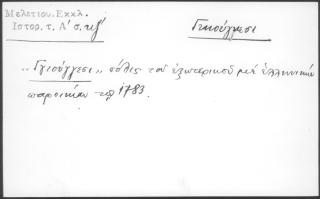 Μελετίου. Εκκλ.
Ιστορ. τ. Α' σ. κξ'
Γκιούγγεσι
"Γκιούγγεσι,, πόλις του εξωτερικού μετά ελληνικών
παροικιών τω 1783.